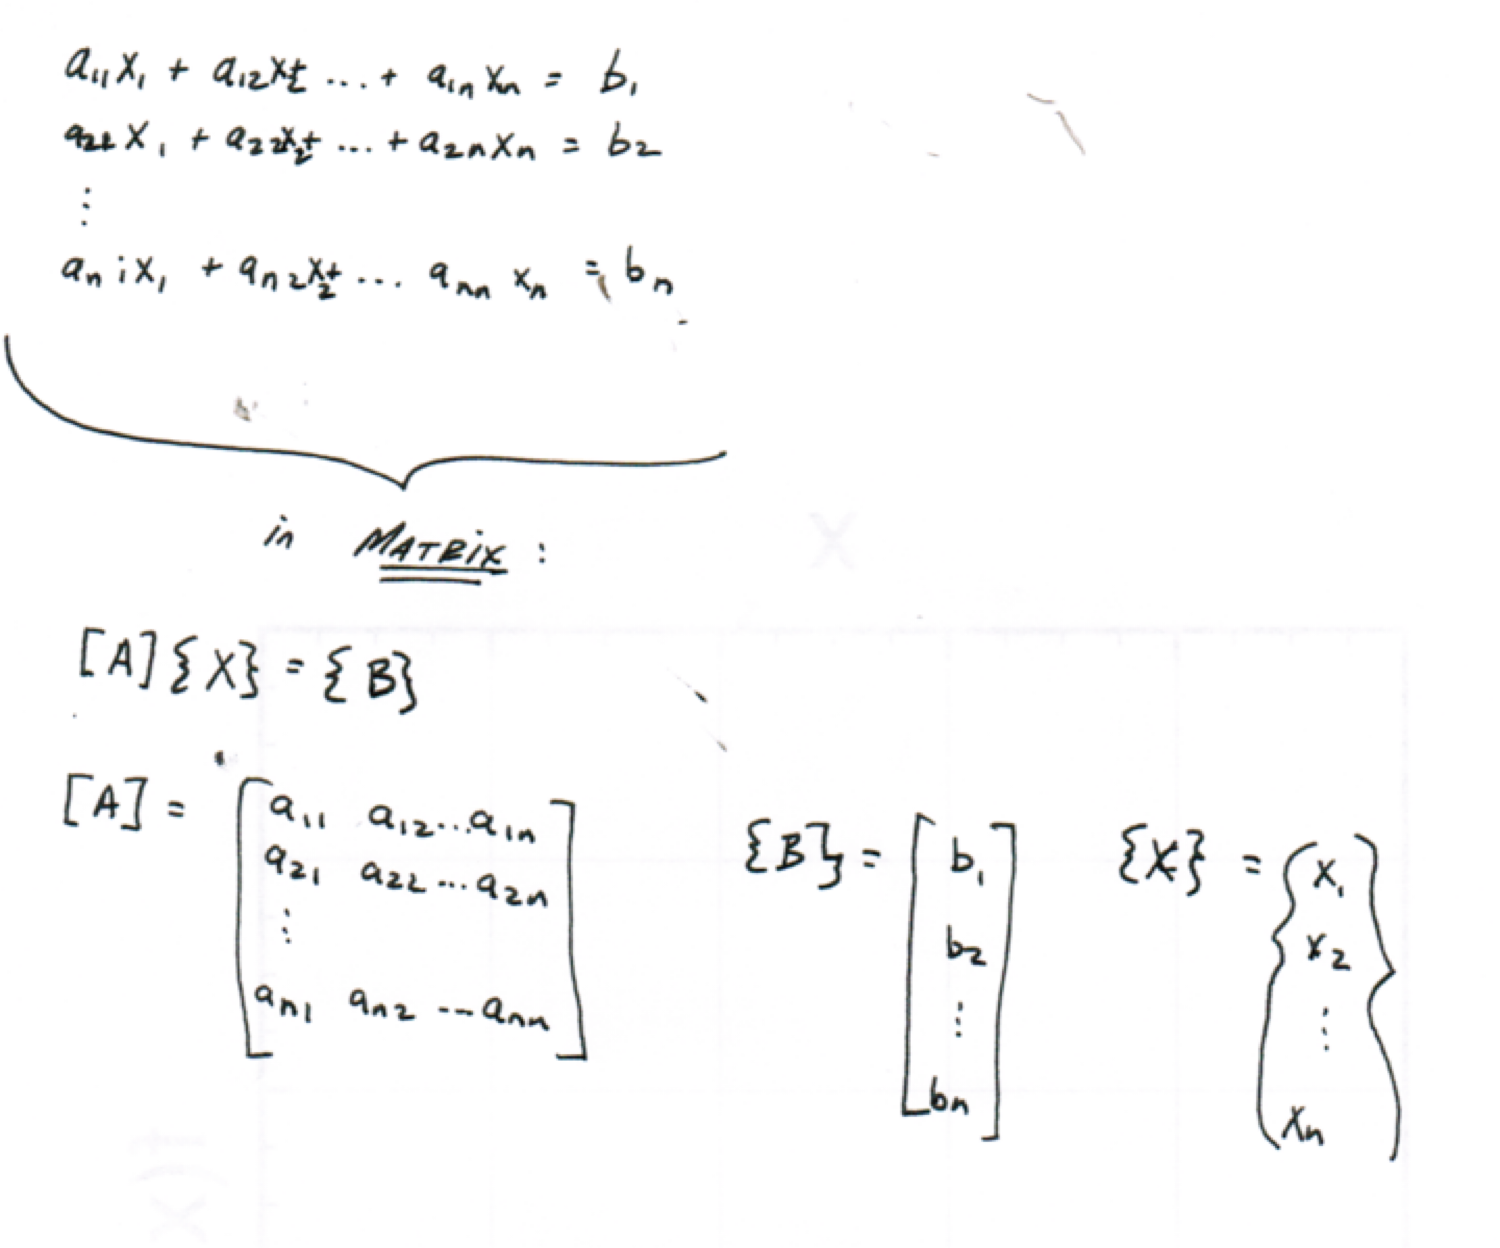 a₁₁x₁ + a₁₂x₂+ ...+ a₁ₙxₙ = b₁
a₂₁x₁ + a₂₂x₂+ ... + a₂ₙxₙ = b₂
⋮
aₙ₁x₁ + aₙ₂x₂+ ... aₙₙ xₙ = bₙ
in MATRIX :
[A]{X} = {B}
[A] = [
a₁₁ a₁₂...a₁ₙ
a₂₁ a₂₂...a₂ₙ
⋮
aₙ₁ aₙ₂ ...aₙₙ
]
{B} = [
b₁
b₂
⋮
bₙ
]
{X} = {
x₁
x₂
⋮
xₙ
}